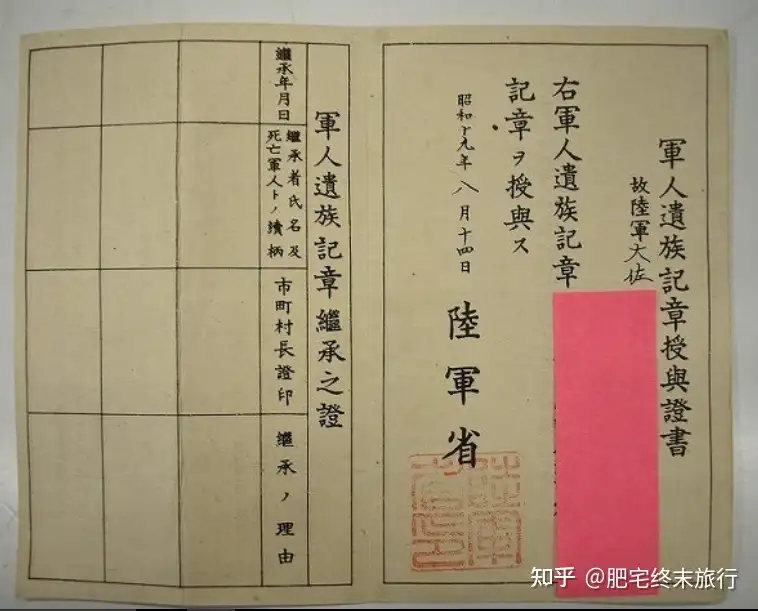 軍人遺族記章授與證書
故陸軍大佐
右軍人遺族記章
記章ヲ授與ス
昭和十九年八月十四日
陸軍省
陸軍
省印
軍人遺族記章繼承之證
繼承年月日
繼承者氏名及
死亡軍人トノ續柄
市町村長證印
繼承ノ理由
知乎 @肥宅终末旅行